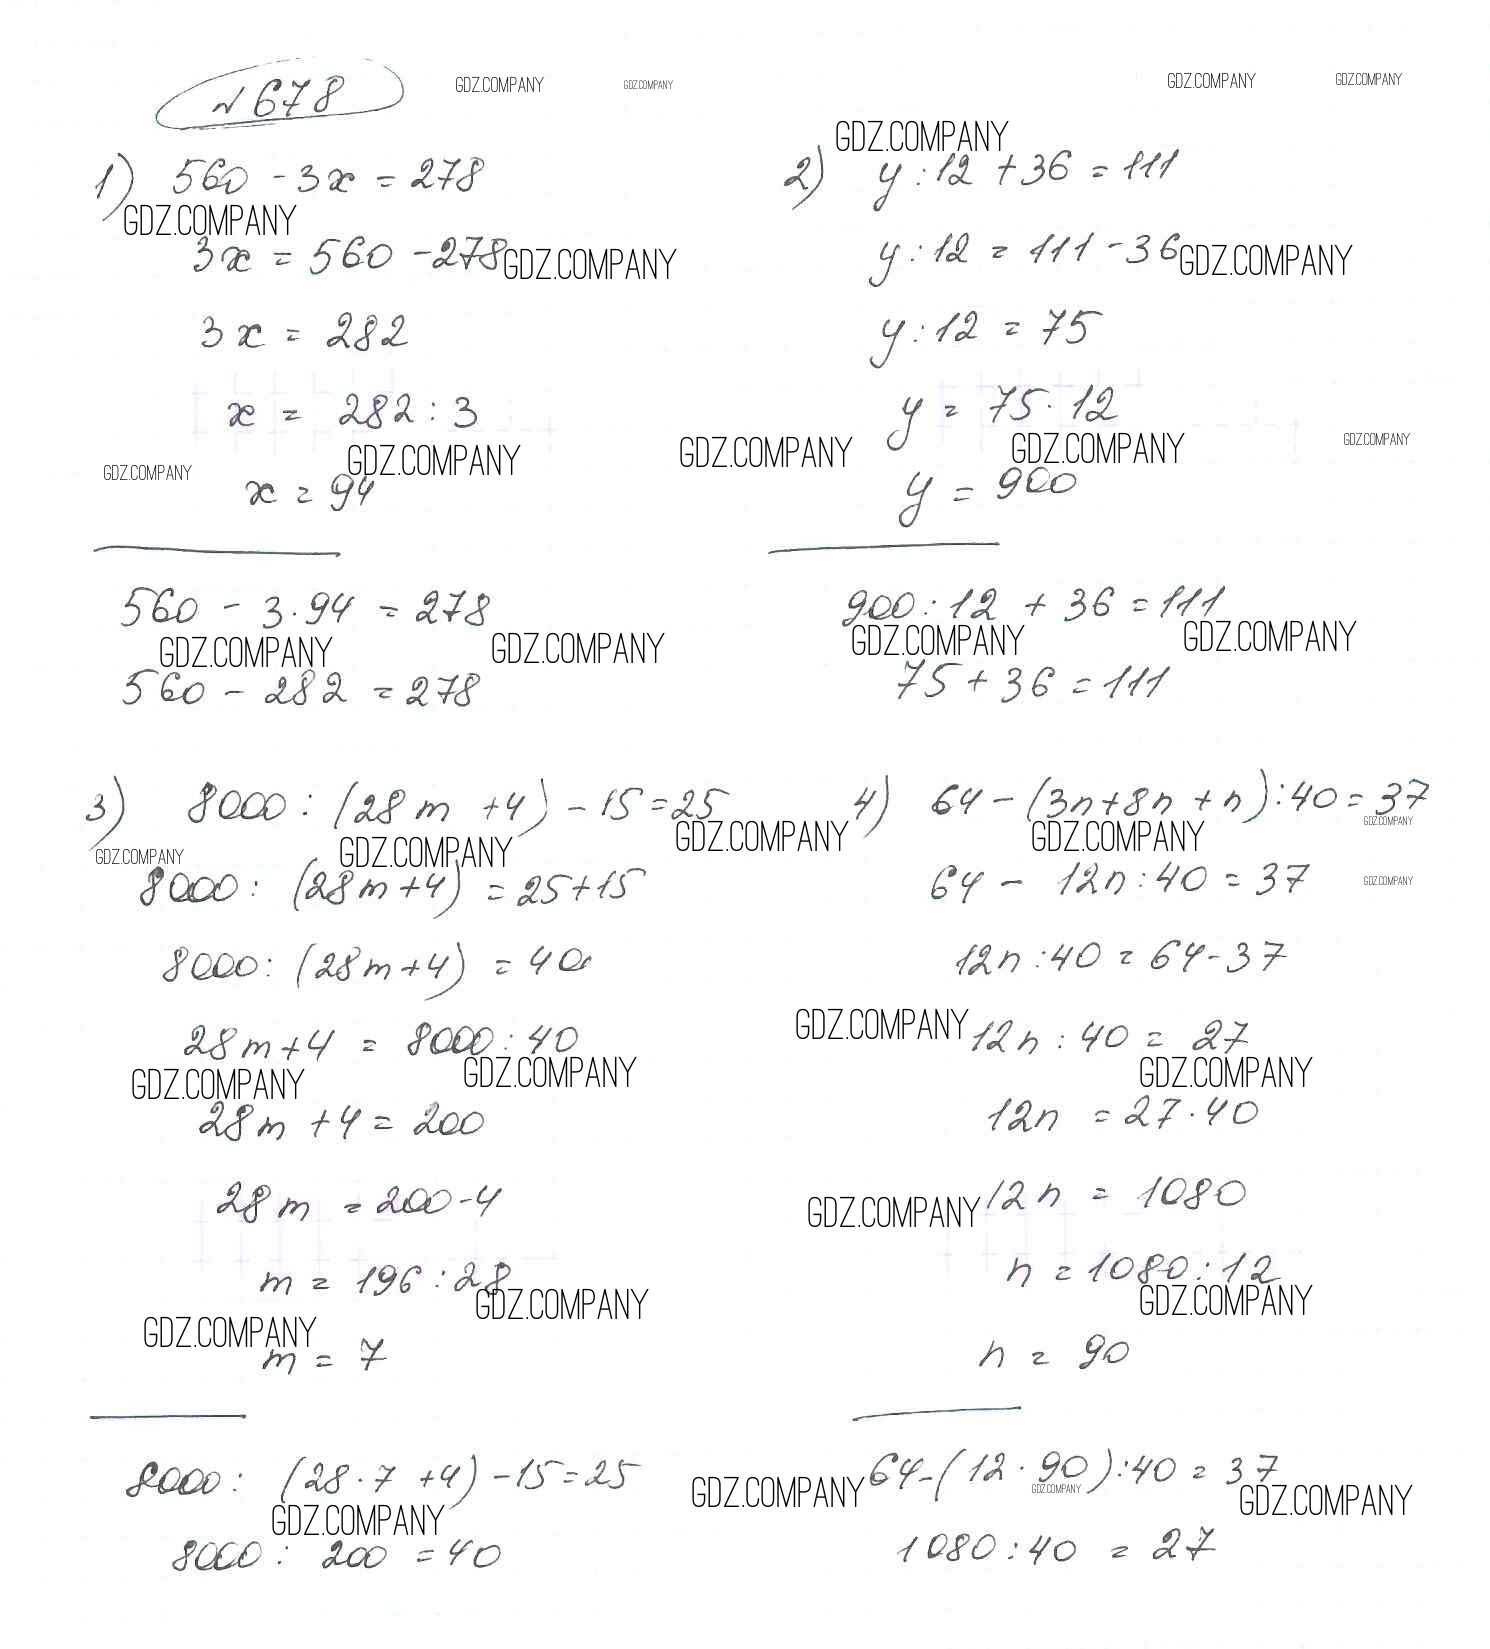 №678
GDZ.COMPANY GDZ.COMPANY GDZ.COMPANY GDZ.COMPANY
1) 560 - 3x = 278
GDZ.COMPANY
3x = 560 - 278
GDZ.COMPANY
3x = 282
x = 282 : 3
GDZ.COMPANY GDZ.COMPANY
x = 94
560 - 3·94 = 278
GDZ.COMPANY GDZ.COMPANY
560 - 282 = 278
GDZ.COMPANY
2) y : 12 + 36 = 111
y : 12 = 111 - 36
GDZ.COMPANY
y : 12 = 75
y = 75·12
GDZ.COMPANY GDZ.COMPANY GDZ.COMPANY
y = 900
900 : 12 + 36 = 111
GDZ.COMPANY GDZ.COMPANY
75 + 36 = 111
3) 8000 : (28m + 4) - 15 = 25
GDZ.COMPANY GDZ.COMPANY GDZ.COMPANY
8000 : (28m + 4) = 25 + 15
8000 : (28m + 4) = 40
28m + 4 = 8000 : 40
GDZ.COMPANY GDZ.COMPANY
28m + 4 = 200
28m = 200 - 4
m = 196 : 28
GDZ.COMPANY GDZ.COMPANY
m = 7
8000 : (28·7 + 4) - 15 = 25
GDZ.COMPANY
8000 : 200 = 40
4) 64 - (3n + 8n + n) : 40 = 37
GDZ.COMPANY GDZ.COMPANY
64 - 12n : 40 = 37
GDZ.COMPANY
12n : 40 = 64 - 37
GDZ.COMPANY
12n : 40 = 27
GDZ.COMPANY
12n = 27·40
GDZ.COMPANY
12n = 1080
n = 1080 : 12
GDZ.COMPANY
n = 90
GDZ.COMPANY
64 - (12·90) : 40 = 37
GDZ.COMPANY GDZ.COMPANY
1080 : 40 = 27